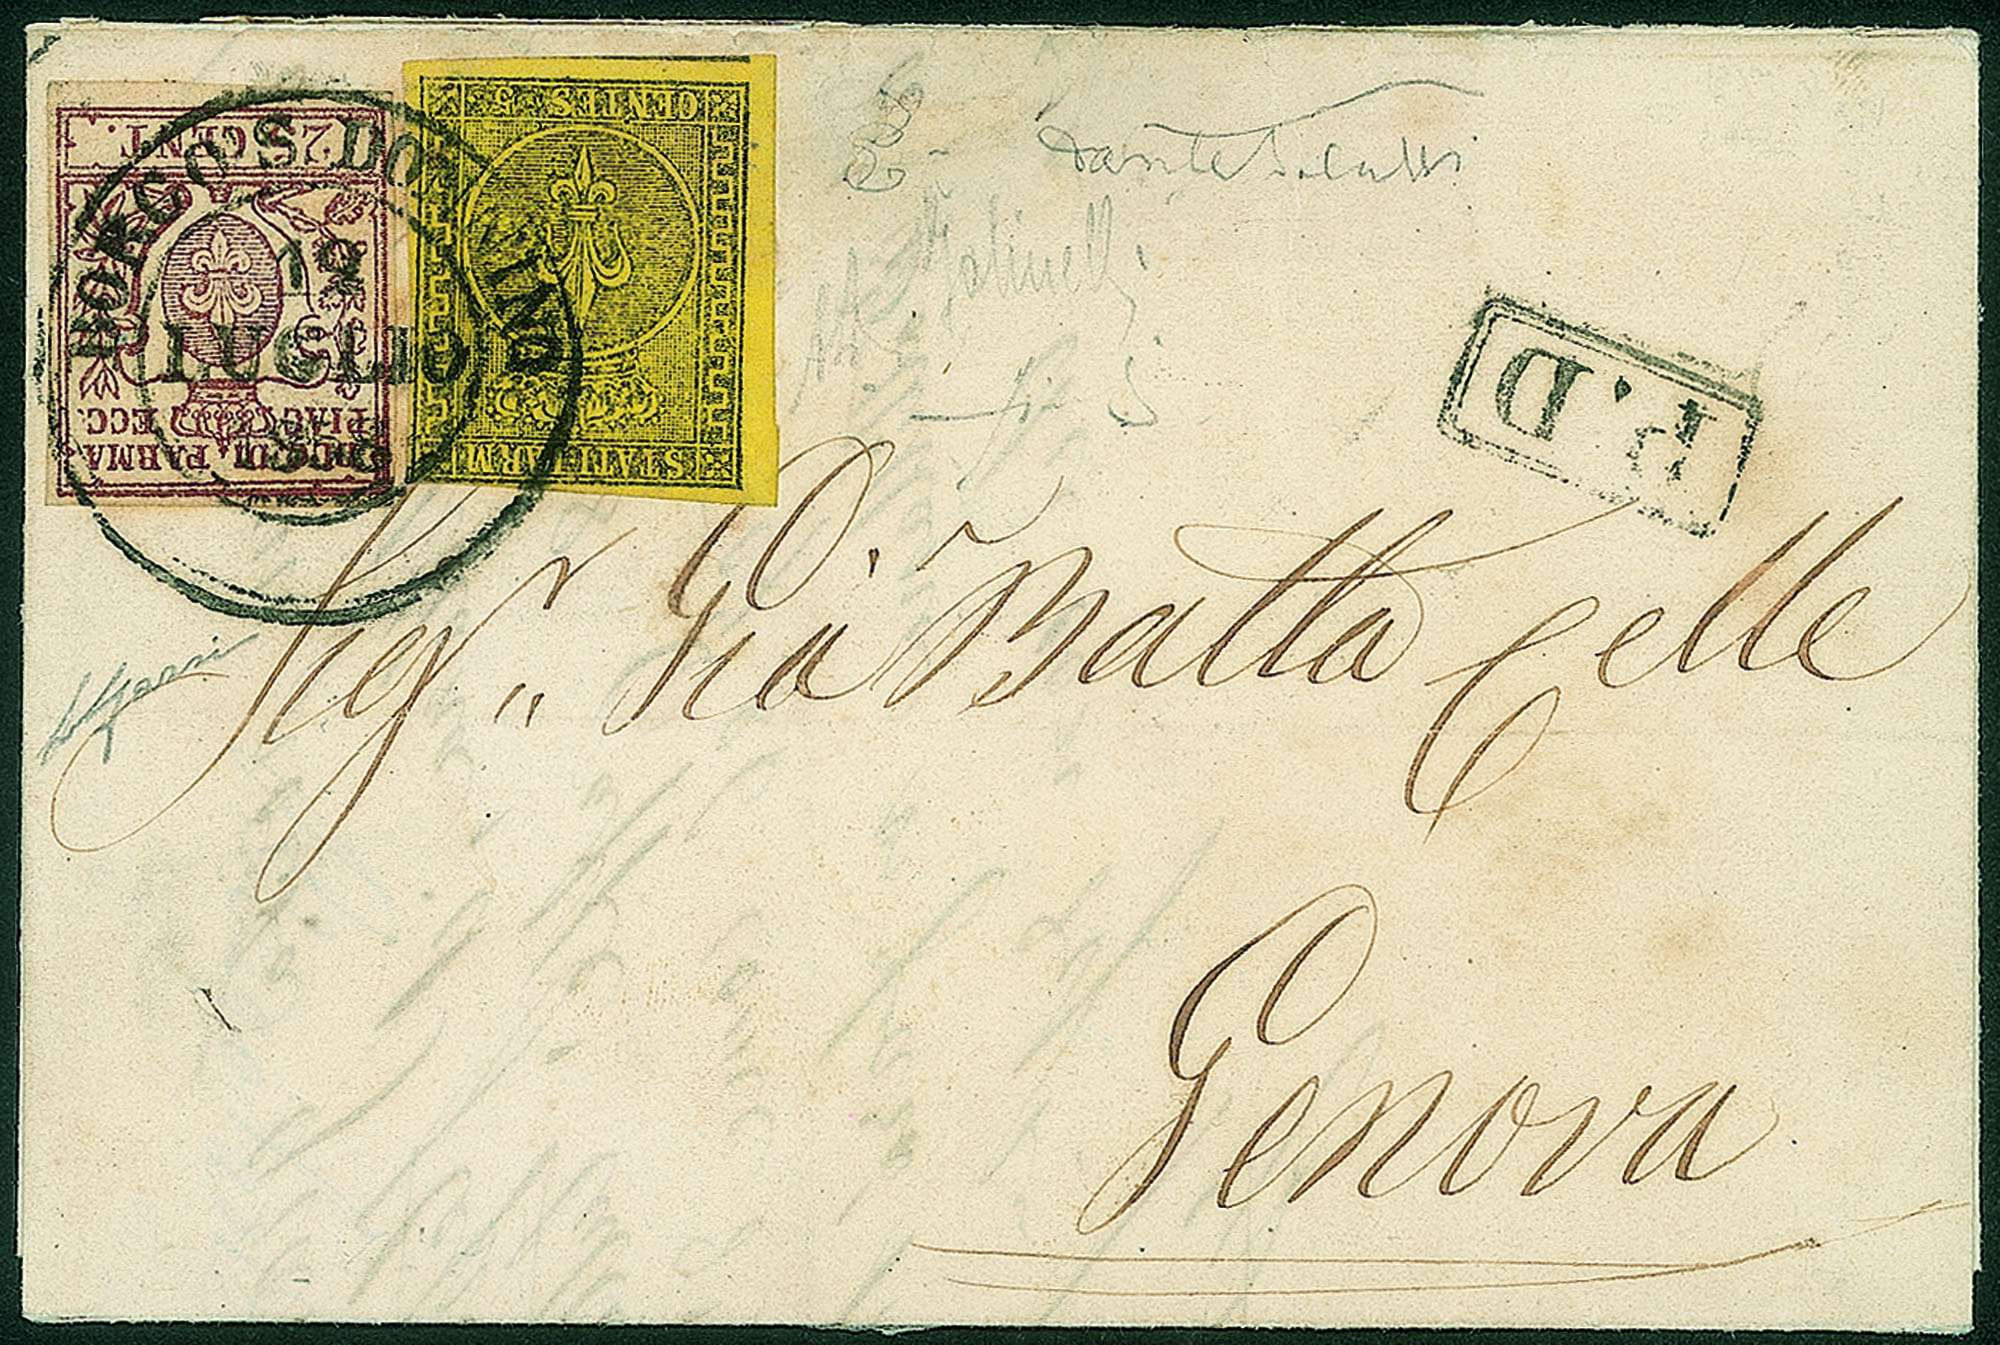 25 CENT.
DUC. DI PARMA
PIAC. ECC.
CENTES. 5
STATI PARM
BORGO S. DONNINO
19
LUGLIO
P.D.
Sig.r Gio Batta Celle
Genova